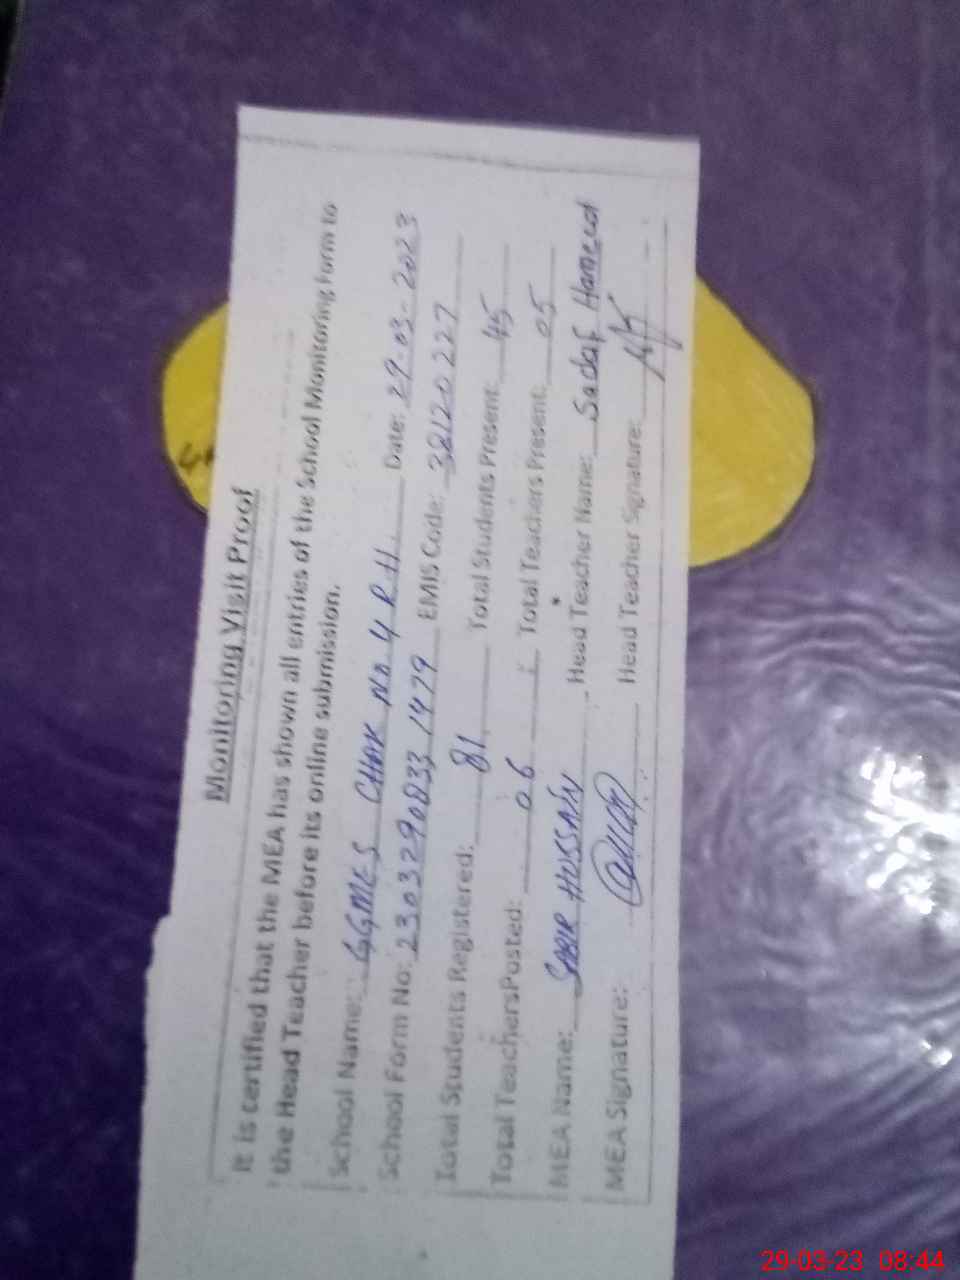 Monitoring Visit Proof
It is certified that the MEA has shown all entries of the School Monitoring Form to
the Head Teacher before its online submission.
School Name: GGMES CHAK NO 4 R H Date: 29-03-2023
School Form No: 23032908331479 EMIS Code: 38120227
Total Students Registered: 81 Total Students Present: 45
Total TeachersPosted: 06 Total Teachers Present: 05
MEA Name: SABIR HUSSAIN Head Teacher Name: Sadaf Hameed
MEA Signature: Head Teacher Signature:
29-03-23 08:44